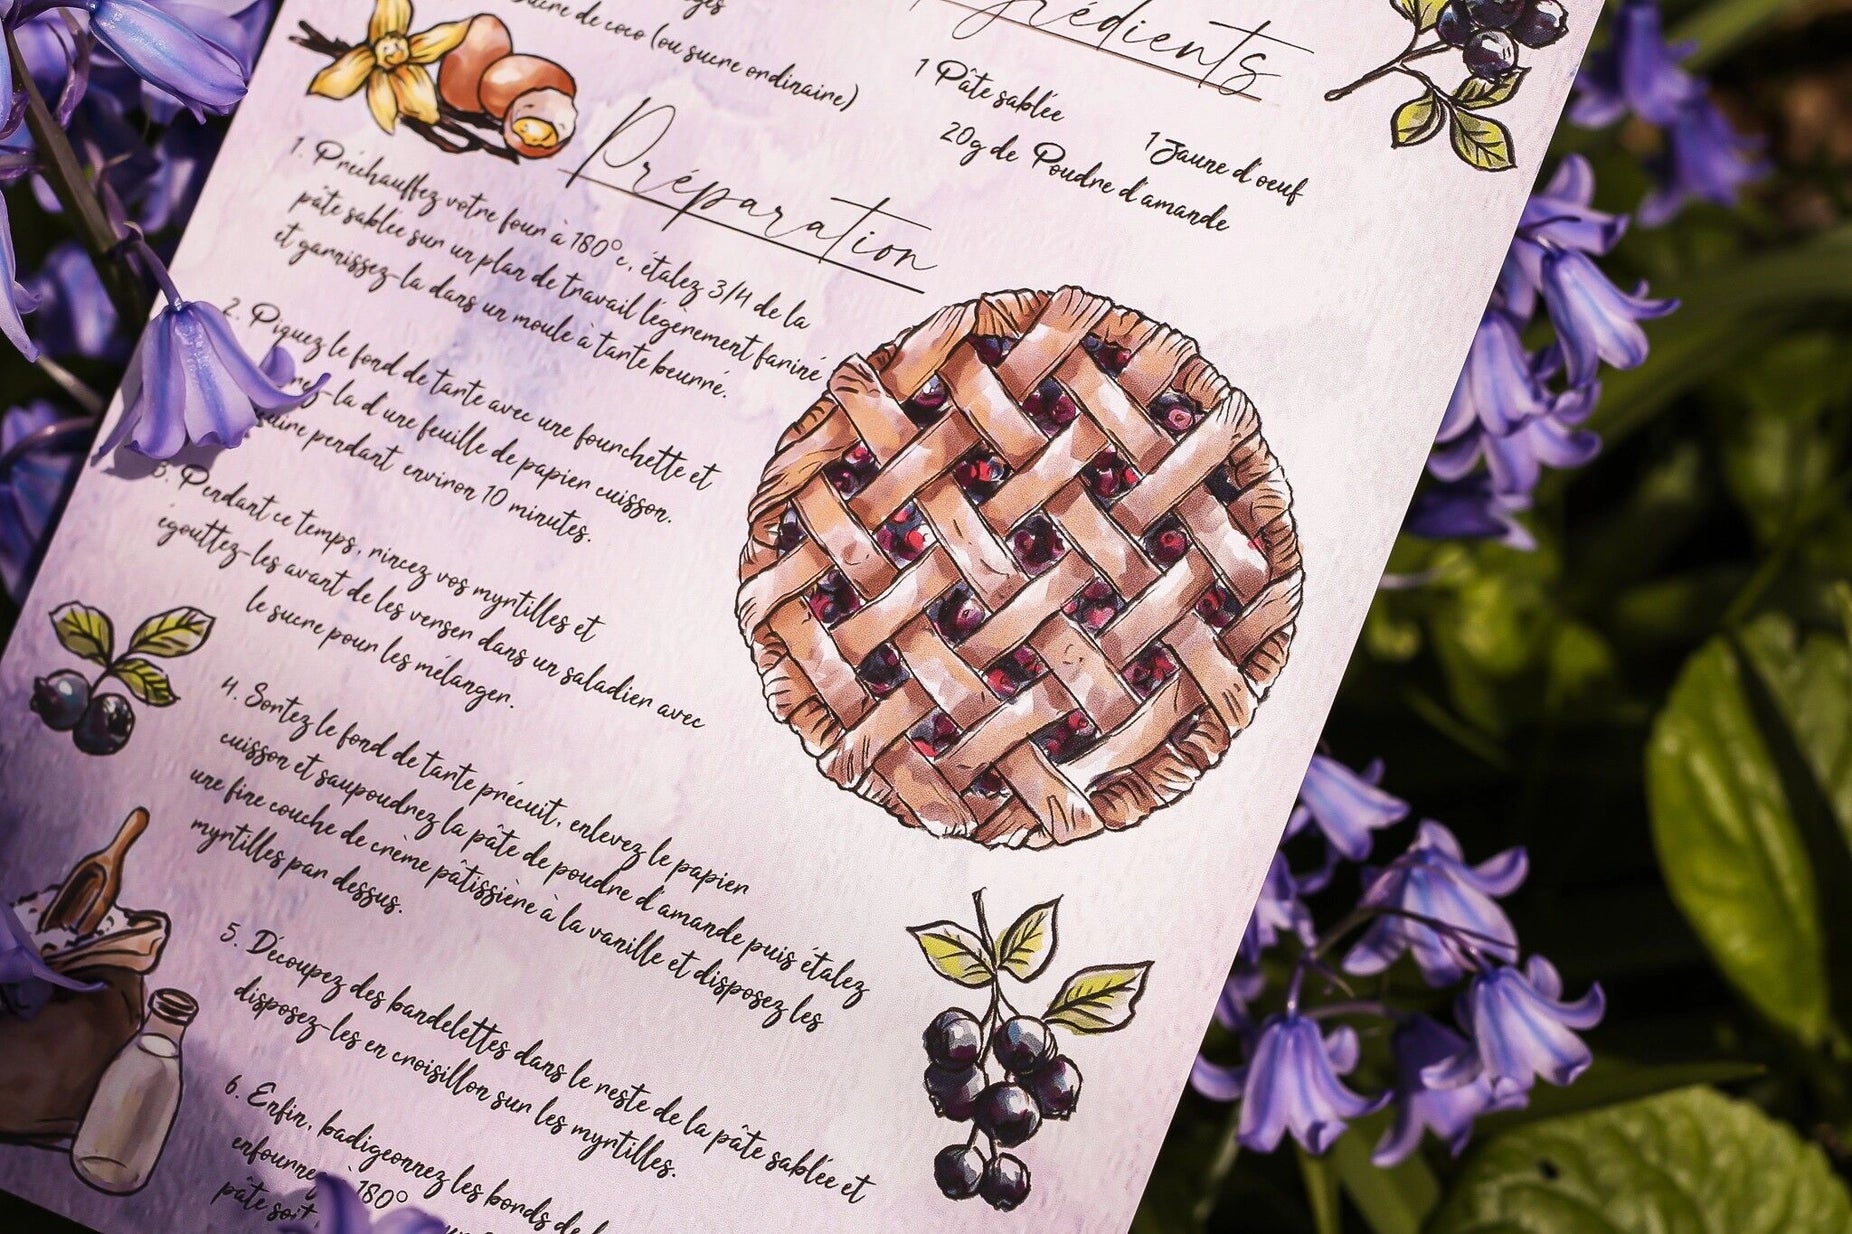 Sucre de coco (ou sucre ordinaire)
Ingrédients
1 Pâte sablée
1 Jaune d'oeuf
20g de Poudre d'amande
Préparation
1. Préchauffez votre four à 180°c, étalez 3/4 de la
pâte sablée sur un plan de travail légèrement fariné
et garnissez-la dans un moule à tarte beurré.
2. Piquez le fond de tarte avec une fourchette et
-la d'une feuille de papier cuisson.
cuire pendant environ 10 minutes.
3. Pendant ce temps, rincez vos myrtilles et
égouttez-les avant de les verser dans un saladier avec
le sucre pour les mélanger.
4. Sortez le fond de tarte précuit, enlevez le papier
cuisson et saupoudrez la pâte de poudre d'amande puis étalez
une fine couche de crème pâtissière à la vanille et disposez les
myrtilles par dessus.
5. Découpez des bandelettes dans le reste de la pâte sablée et
disposez-les en croisillon sur les myrtilles.
6. Enfin, badigeonnez les bords de
enfournez à 180°
pâte soit